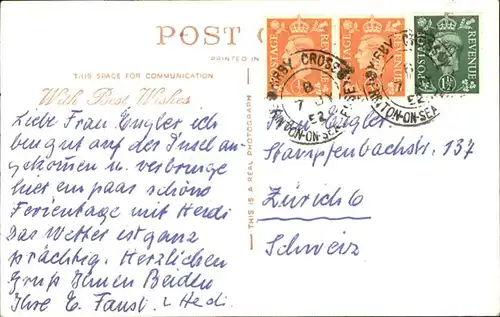 POST C
PRINTED IN
THIS SPACE FOR COMMUNICATION
With Best Wishes
Liebe Frau Engler ich
bin gut auf der Insel an-
gekommen u. verbringe
hier ein paar schöne
Ferientage mit Hedi
Das Wetter ist ganz
prächtig. Herzlichen
Gruß Ihnen Beiden
Ihre E. Faust. u Hedi.
THIS IS A REAL PHOTOGRAPH
POSTAGE REVENUE
POSTAGE REVENUE
POSTAGE REVENUE
1½D
KIRBY CROSS
FRINTON-ON-SEA
7
52
KIRBY CROSS
FRINTON-ON-SEA
7
52
Frau Engler
Stampfenbachstr. 137
Zürich 6
Schweiz